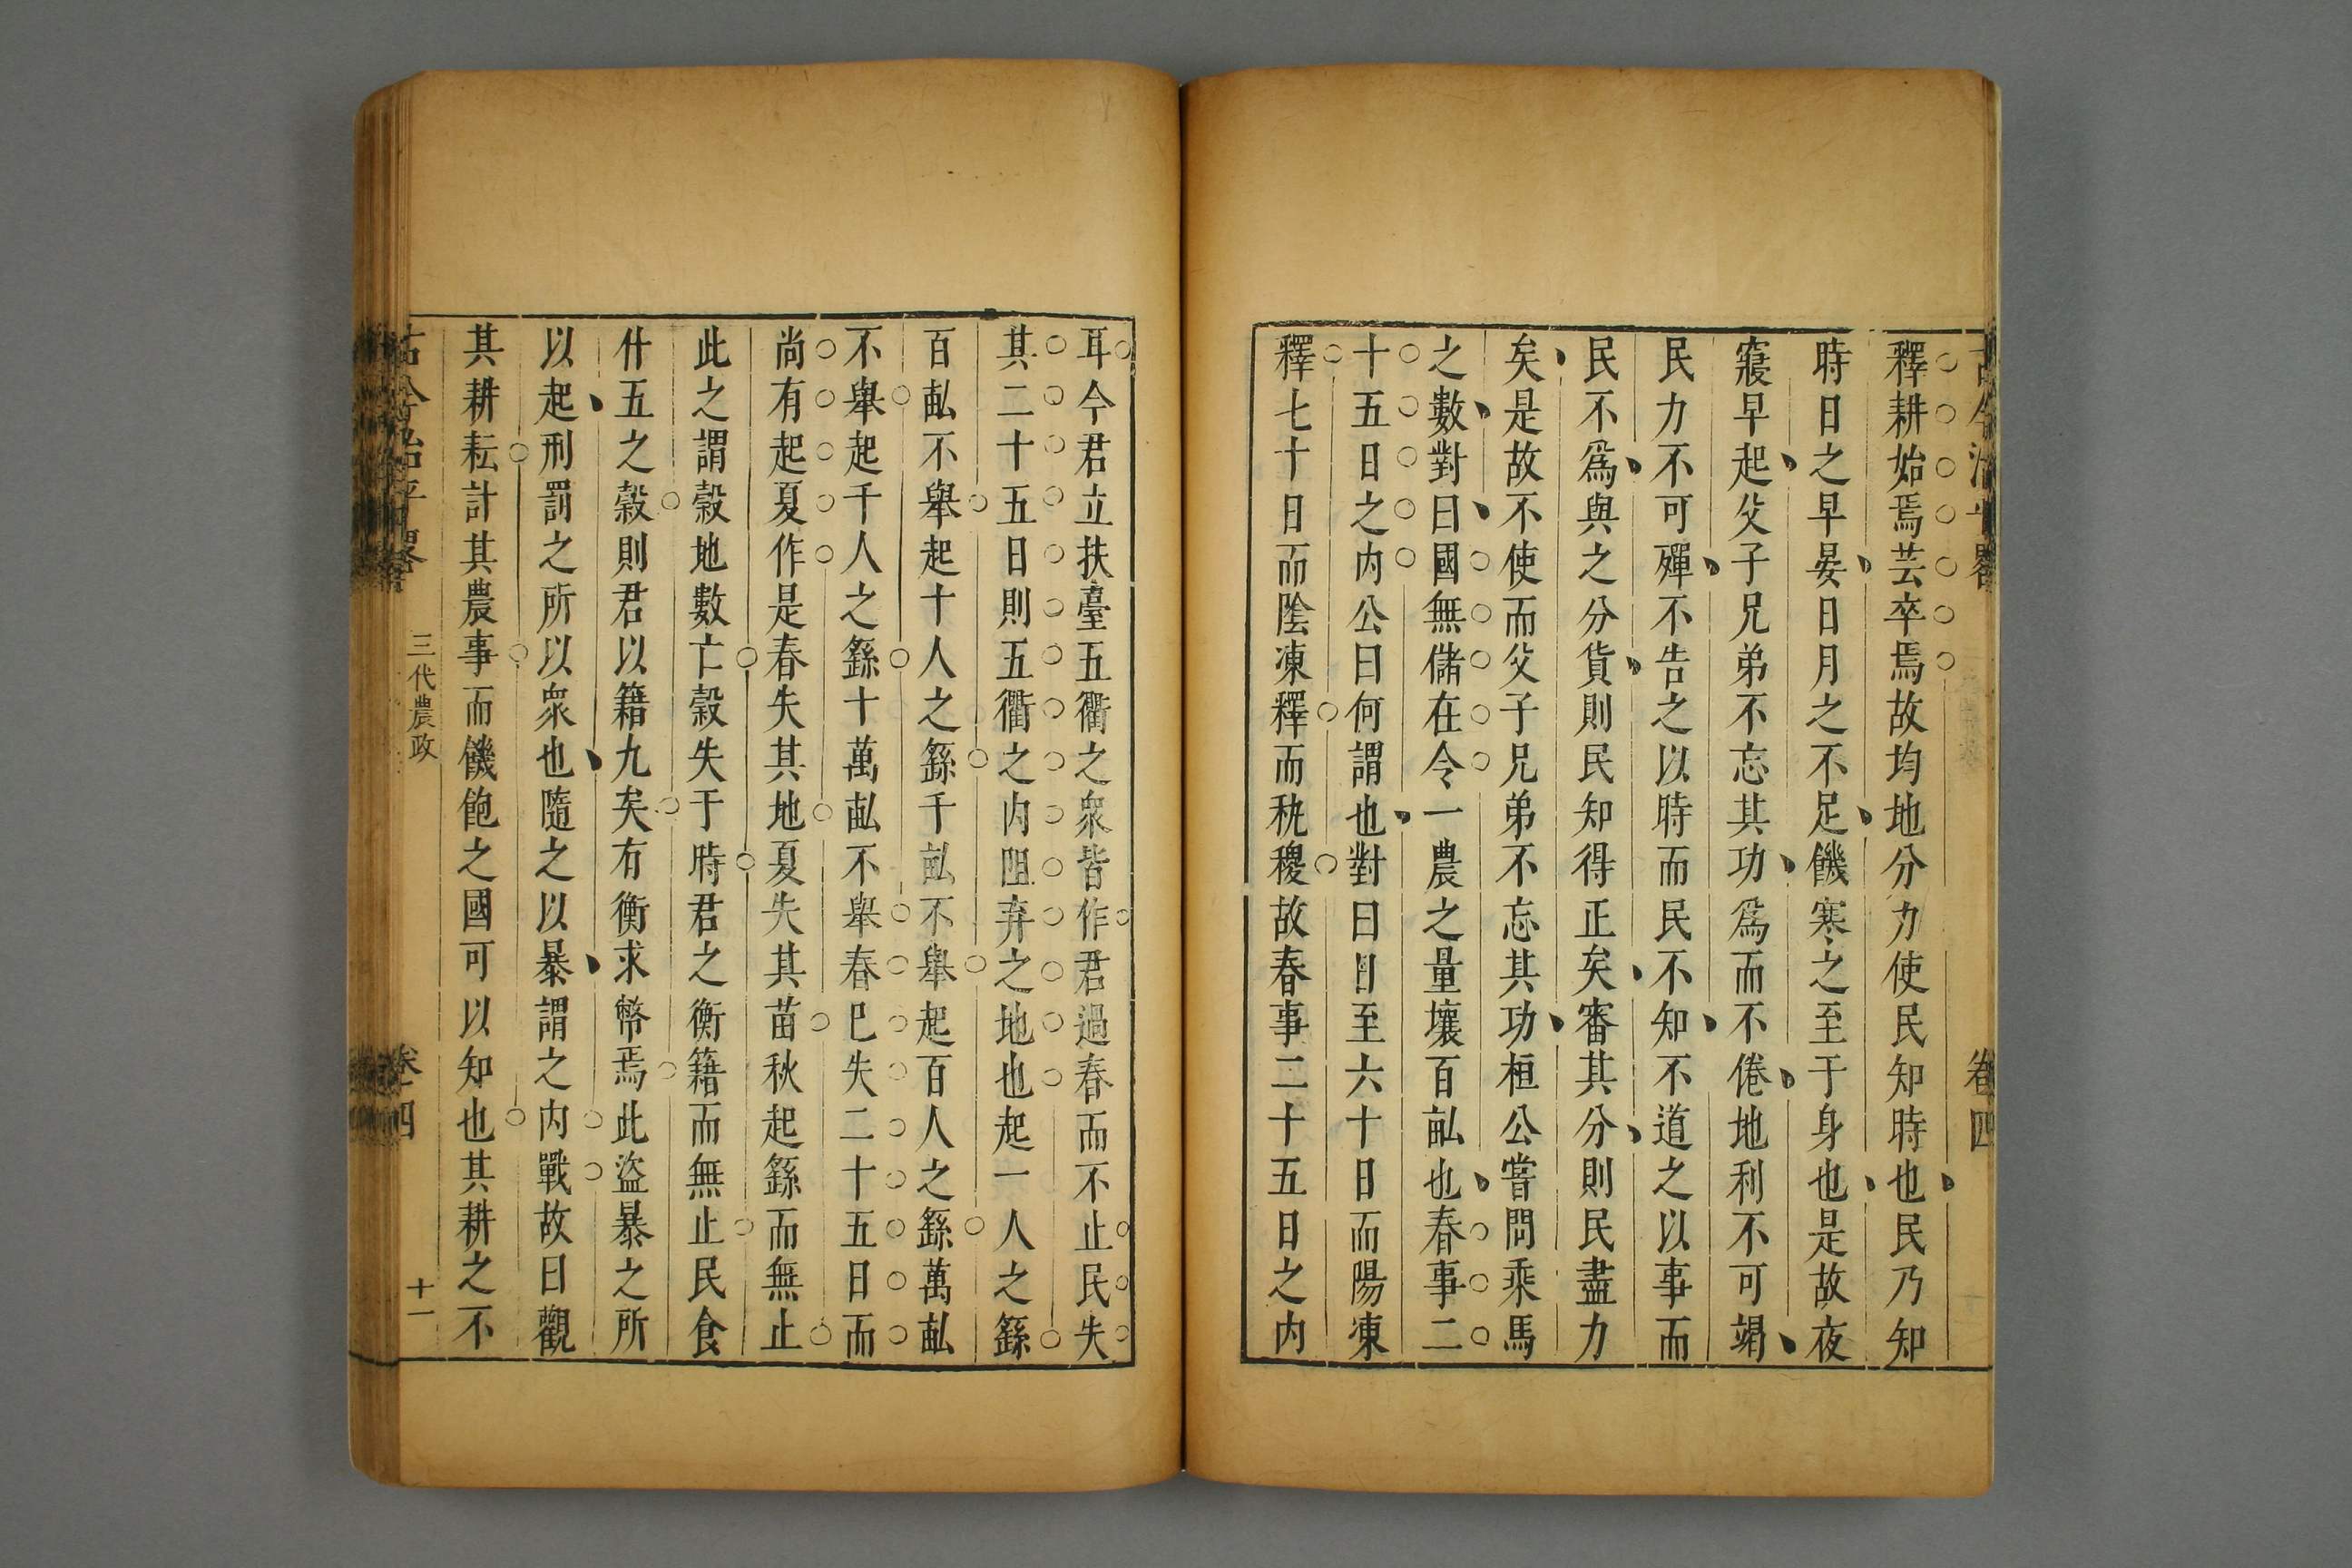 釋耕始焉芸卒焉故均地分力使民知時也民乃知
時日之早晏日月之不足饑寒之至于身也是故夜
寢早起父子兄弟不忘其功爲而不倦地利不可竭
民力不可殫不告之以時而民不知不道之以事而
民不爲與之分貨則民知得正矣審其分則民盡力
矣是故不使而父子兄弟不忘其功桓公嘗問乘馬
之數對曰國無儲在令一農之量壤百畝也春事二
十五日之内公曰何謂也對曰日至六十日而陽凍
釋七十日而陰凍釋而秇稷故春事二十五日之内
耳今君立扶臺五衢之衆皆作君過春而不止民失
其二十五日則五衢之内阻弃之地也起一人之繇
百畝不舉起十人之繇千畝不舉起百人之繇萬畝
不舉起千人之繇十萬畝不舉春巳失二十五日而
尚有起夏作是春失其地夏失其苗秋起繇而無止
此之謂穀地數亡穀失于時君之衡籍而無止民食
什五之穀則君以籍九矣有衡求幣焉此盜暴之所
以起刑罰之所以衆也隨之以暴謂之内戰故曰觀
其耕耘計其農事而饑飽之國可以知也其耕之不
古今治平畧 三代農政 卷四 十一